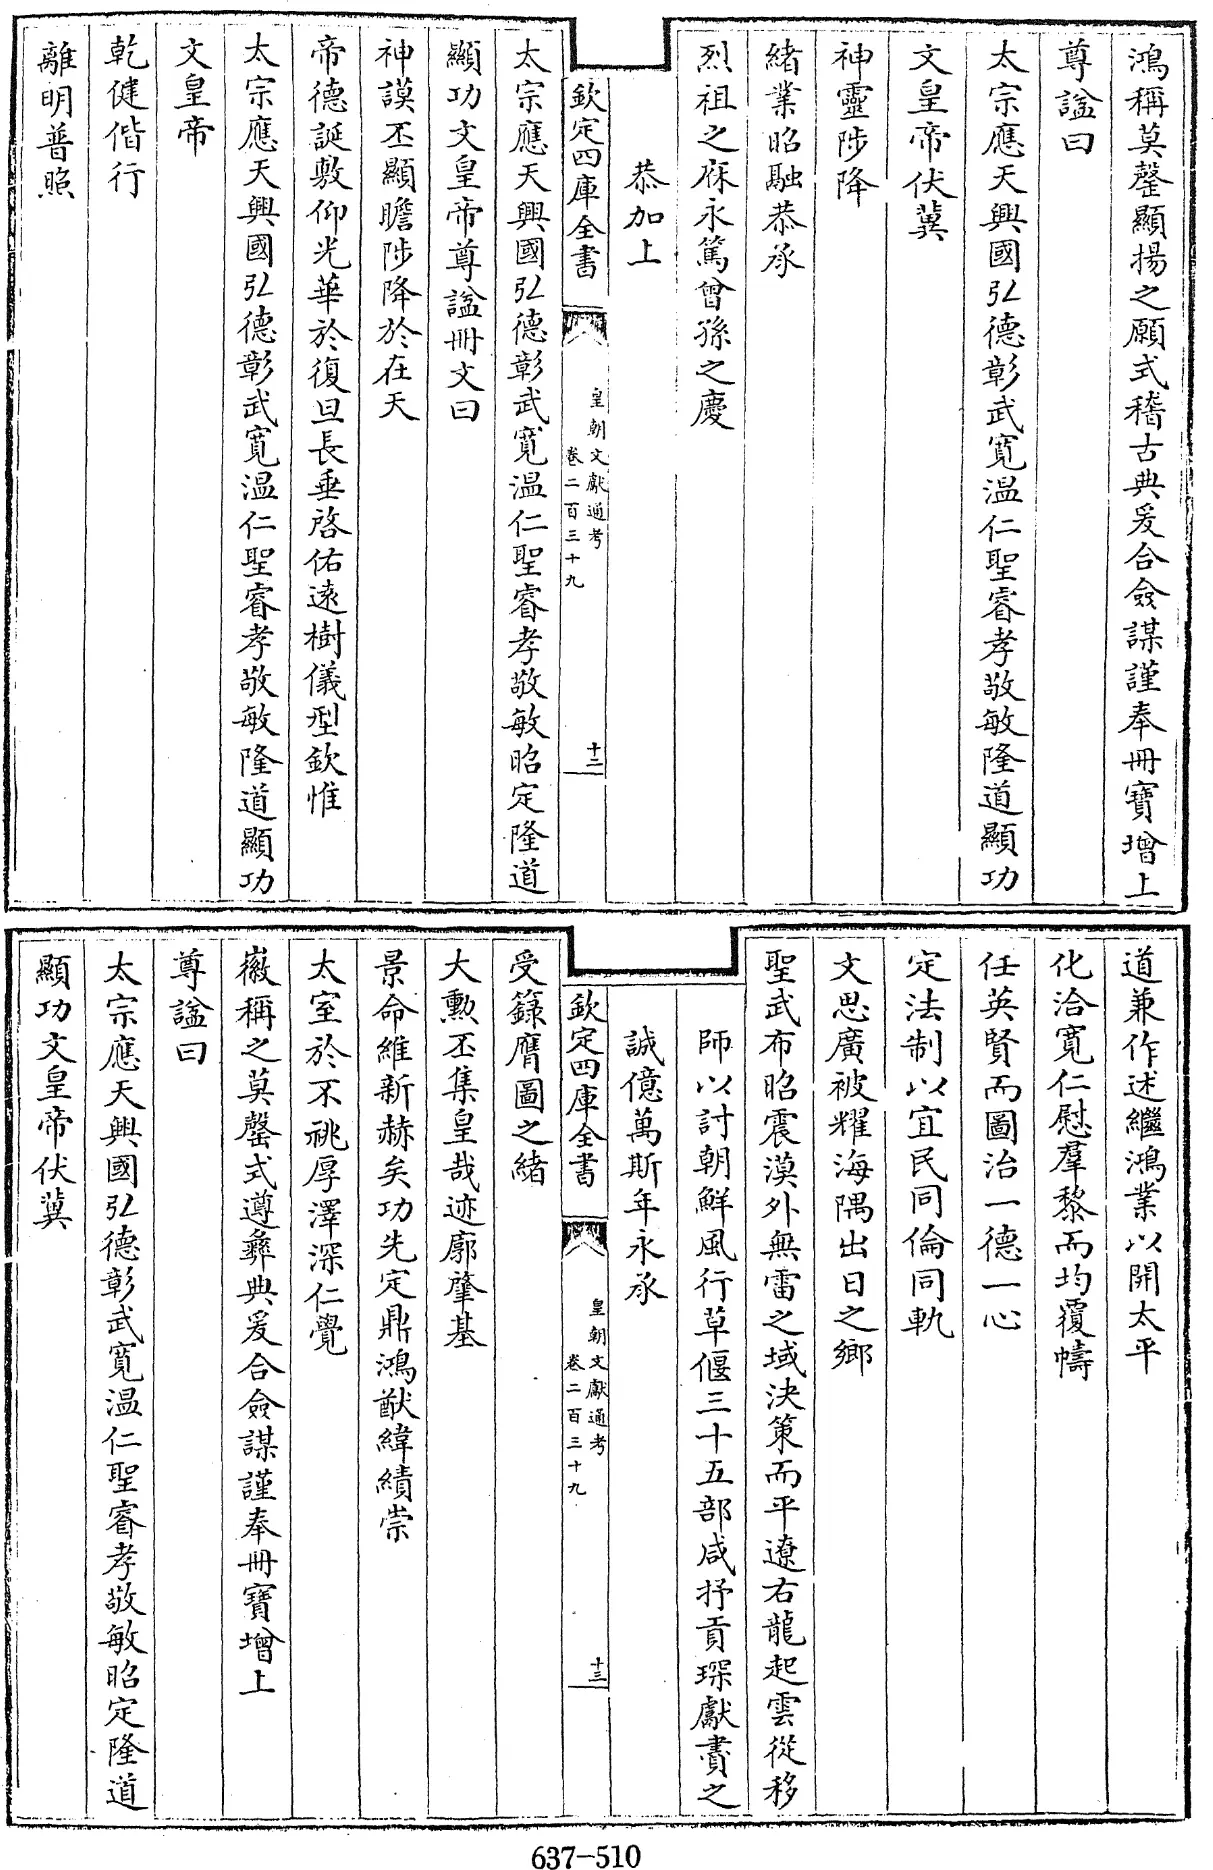 鴻稱莫罄顯揚之願式稽古典爰合僉謀謹奉冊寶增上
尊諡曰
太宗應天興國弘德彰武寬温仁聖睿孝敬敏隆道顯功
文皇帝伏冀
神靈陟降
緒業昭融恭承
烈祖之庥永篤曾孫之慶
恭加上
欽定四庫全書
皇朝文獻通考
卷二百三十九
十二
太宗應天興國弘德彰武寬温仁聖睿孝敬敏昭定隆道
顯功文皇帝尊諡冊文曰
神謨丕顯瞻陟降於在天
帝德誕敷仰光華於復旦長垂啓佑遠樹儀型欽惟
太宗應天興國弘德彰武寬温仁聖睿孝敬敏隆道顯功
文皇帝
乾健偕行
離明普照
道兼作述繼鴻業以開太平
化洽寬仁慰羣黎而均覆幬
任英賢而圖治一德一心
定法制以宜民同倫同軌
文思廣被耀海隅出日之鄉
聖武布昭震漠外無雷之域決策而平遼右龍起雲從移
師以討朝鮮風行草偃三十五部咸抒貢琛獻賮之
誠億萬斯年永承
欽定四庫全書
皇朝文獻通考
卷二百三十九
十三
受籙膺圖之緒
大勲丕集皇哉迹廓肇基
景命維新赫矣功先定鼎鴻猷緯績崇
太室於不祧厚澤深仁覺
徽稱之莫罄式遵彝典爰合僉謀謹奉冊寶增上
尊諡曰
太宗應天興國弘德彰武寬温仁聖睿孝敬敏昭定隆道
顯功文皇帝伏冀
637-510